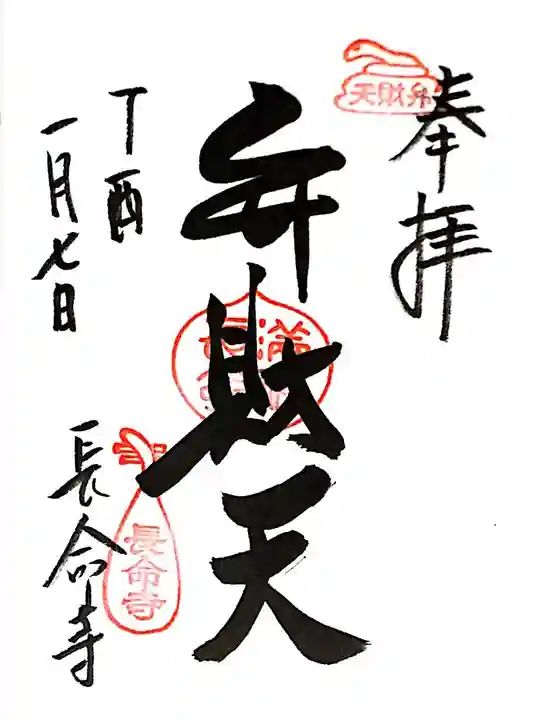 奉拝
弁財天
弁財天
丁酉
一月七日
長命寺
長命寺